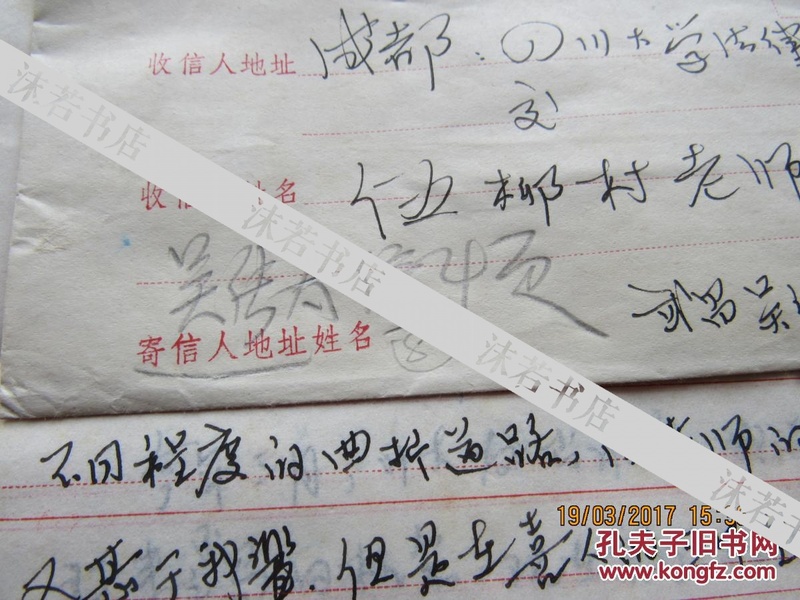 收信人地址 成都:四川大学法律
交
收信 姓名 伍柳村老师
吴 4页
寄信人地址姓名
武昌吴
不同程度的曲折道路, 老师的
又基于我 但是在
沫若书店
沫若书店
沫若书店
沫若书店
19/03/2017 15:
孔夫子旧书网
www.kongfz.com